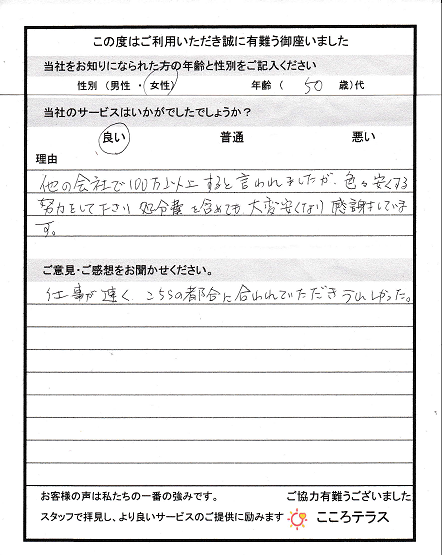 この度はご利用いただき誠に有難う御座いました
当社をお知りになられた方の年齢と性別をご記入ください
性別 (男性 ・ 女性)　年齢 ( 50 歳)代
当社のサービスはいかがでしたでしょうか?
良い　普通　悪い
理由
他の会社で100万以上すると言われましたが、色々安くする
努力をして下さり 処分費を含めても、大変安くなり感謝していま
す。
ご意見・ご感想をお聞かせください。
仕事が速く、こちらの都合に合わせていただきうれしかった。
お客様の声は私たちの一番の強みです。　ご協力有難うございました
スタッフで拝見し、より良いサービスのご提供に励みます　こころテラス